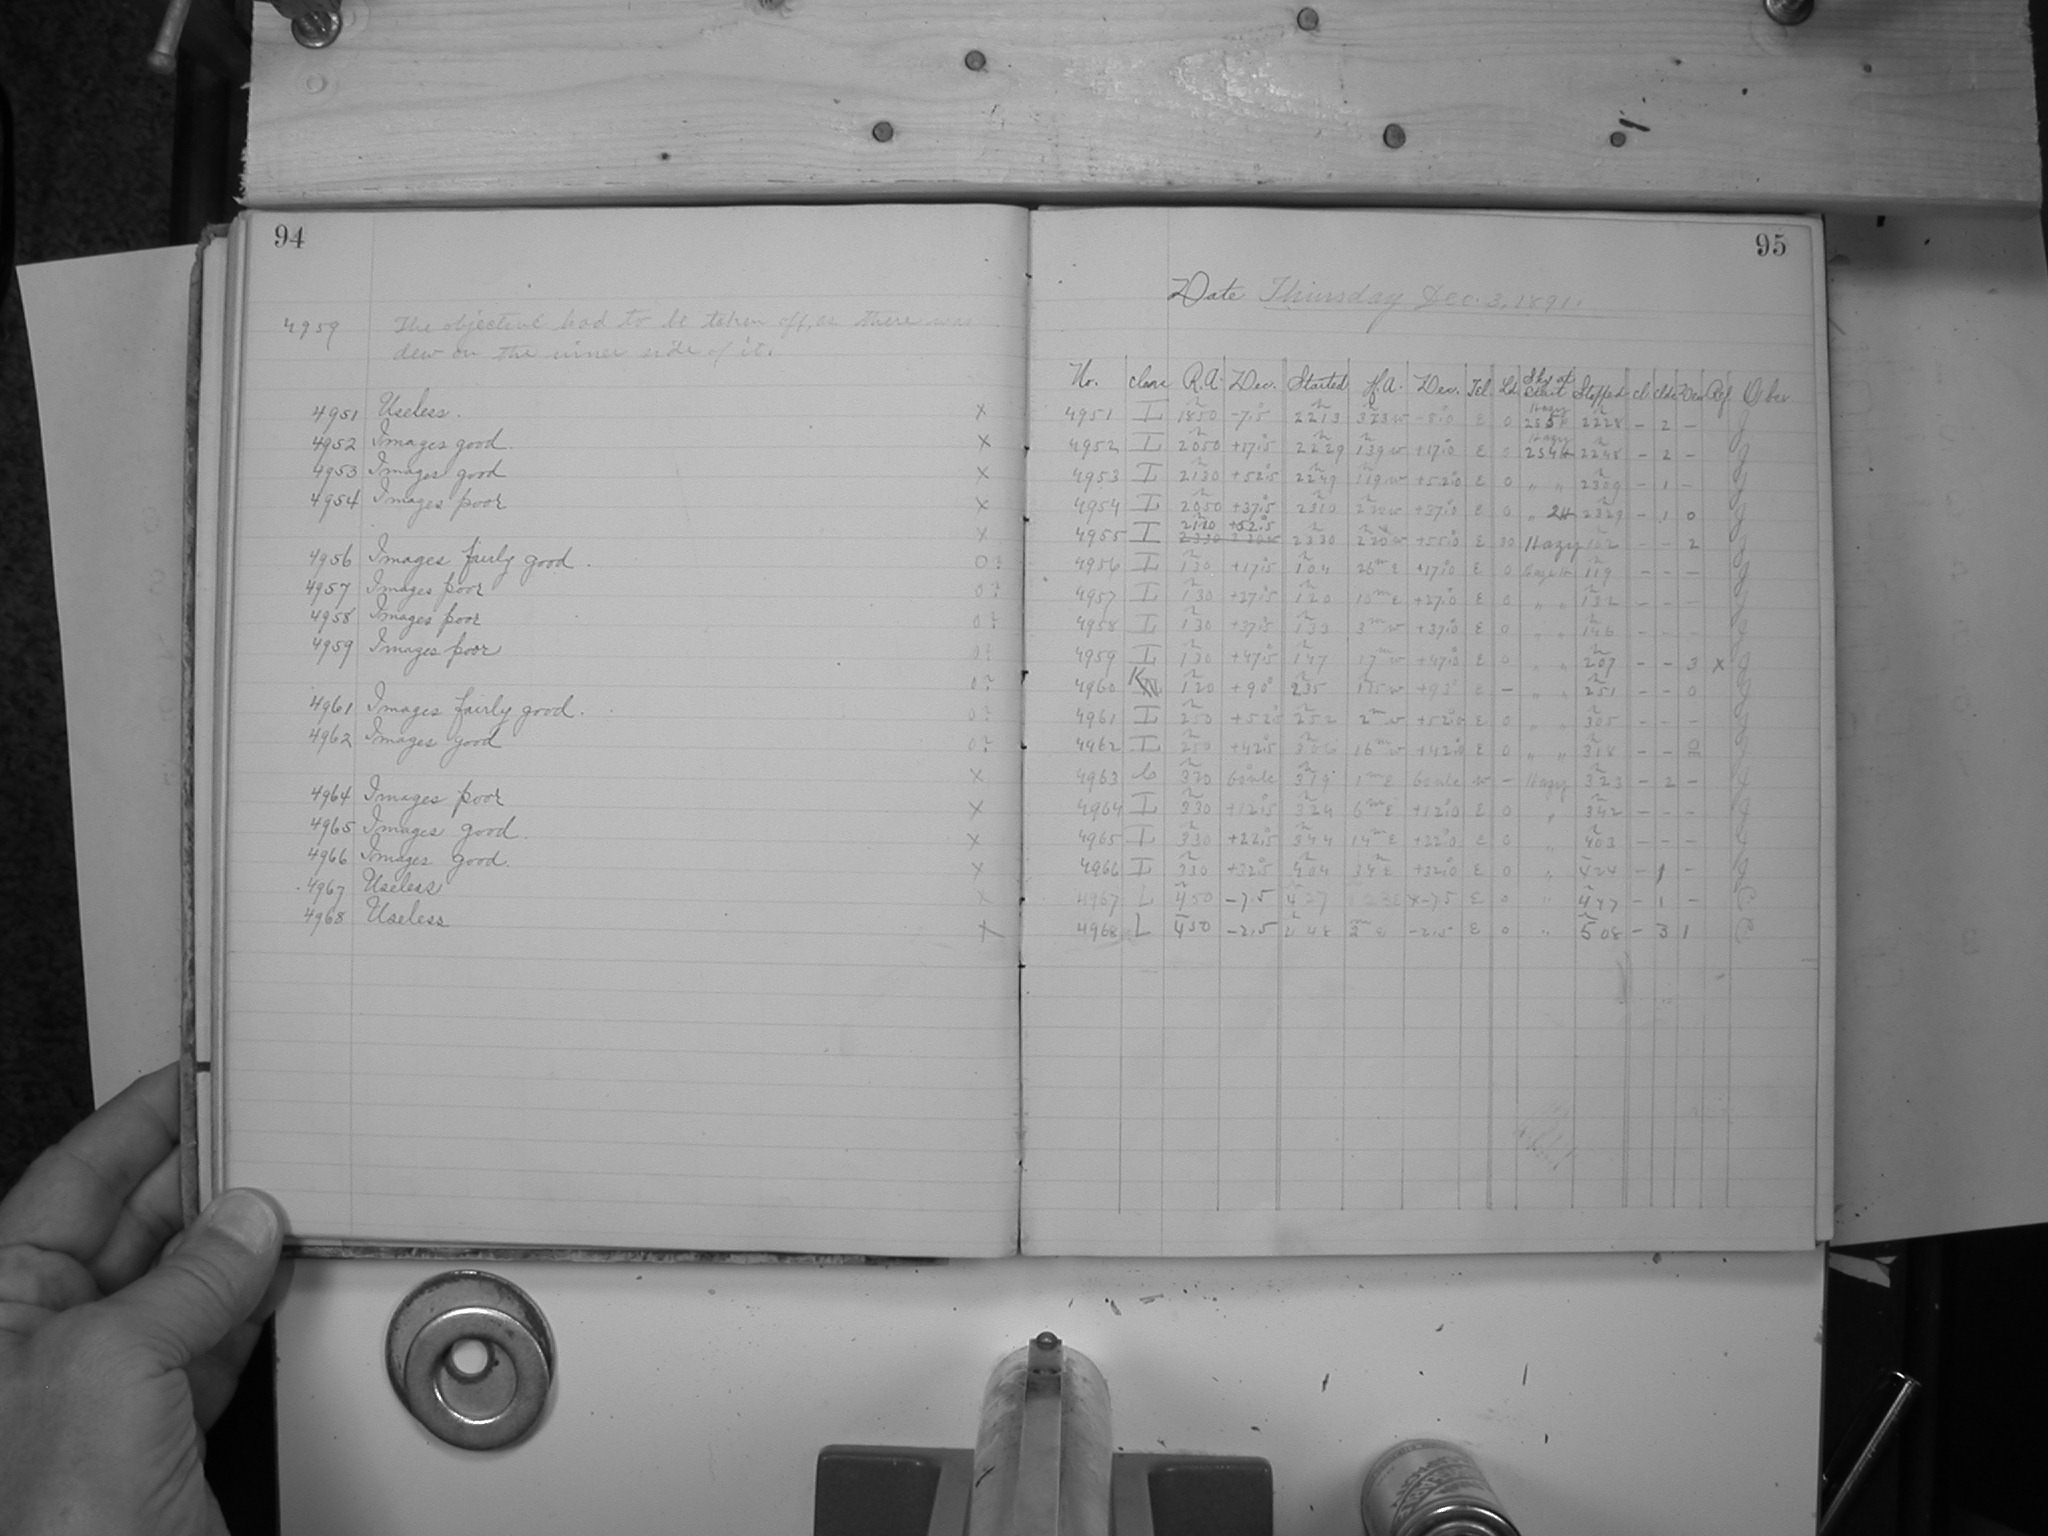 94
4959 The objective had to be taken off, as there was
dew on the inner side of it.
4951 Useless. X
4952 Images good. X
4953 Images good X
4954 Images poor X
X
4956 Images fairly good. 0?
4957 Images poor 0?
4958 Images poor 0?
4959 Images poor 0?
0?
4961 Images fairly good. 0?
4962 Images good 0?
X
4964 Images poor X
4965 Images good. X
4966 Images good. X
4967 Useless X
4968 Useless X
95
Date Thursday Dec. 3, 1891.
No. class R.A. Dec. Started H.A. Dec. Tel. Sky at Start Stopped cl clds Dew Ref. Obser
4951 I 18 50 -7.5 22 13 3 23 w -8.0 E 0 Hazy 22 28 - 2 -
4952 I 20 50 +17.5 22 29 1 39 w +17.0 E 0 Hazy 22 48 - 2 -
4953 I 21 30 +52.5 22 49 1 19 w +52.0 E 0 " " 23 09 - 1 -
4954 I 20 50 +37.5 23 10 +37.0 E 0 " 24 23 29 - 1 0
4955 I +52.5 23 30 2 20 w +55.0 E Hazy - - 2
4956 I 1 30 +17.5 1 04 26m E +17.0 E 0 1 19 - - -
4957 I 1 30 +27.5 1 20 10m E +27.0 E 0 " " 1 32 - - -
4958 I 1 30 +37.5 1 33 3m w +37.0 E 0 " " 1 46 - - -
4959 I 1 30 +47.5 1 47 17m w +47.0 E 0 " " 2 07 - - 3 X
4960 K 1 20 +90° 2 35 1 15 w +93° E - " " 2 51 - - 0
4961 I 2 50 +52.5 2 52 2m w +52.0 E 0 " " 3 05 - - -
4962 I 2 50 +42.5 3 06 16m w +42.0 E 0 " " 3 18 - - 0
4963 C 3 20 3 19 1m E w - Hazy 3 23 - 2 -
4964 I 3 30 +12.5 3 24 6m E +12.0 E 0 " 3 42 - - -
4965 I 3 30 +22.5 3 44 14m E +22.0 E 0 " 4 03 - - -
4966 I 3 30 +32.5 4 04 34 E +32.0 E 0 " 4 24 - 1 -
4967 L 4 50 -7.5 4 27 -7.5 E 0 " 4 47 - 1 -
4968 L 4 50 -2.5 4 48 2m E -2.5 E 0 " 5 08 - 3 1